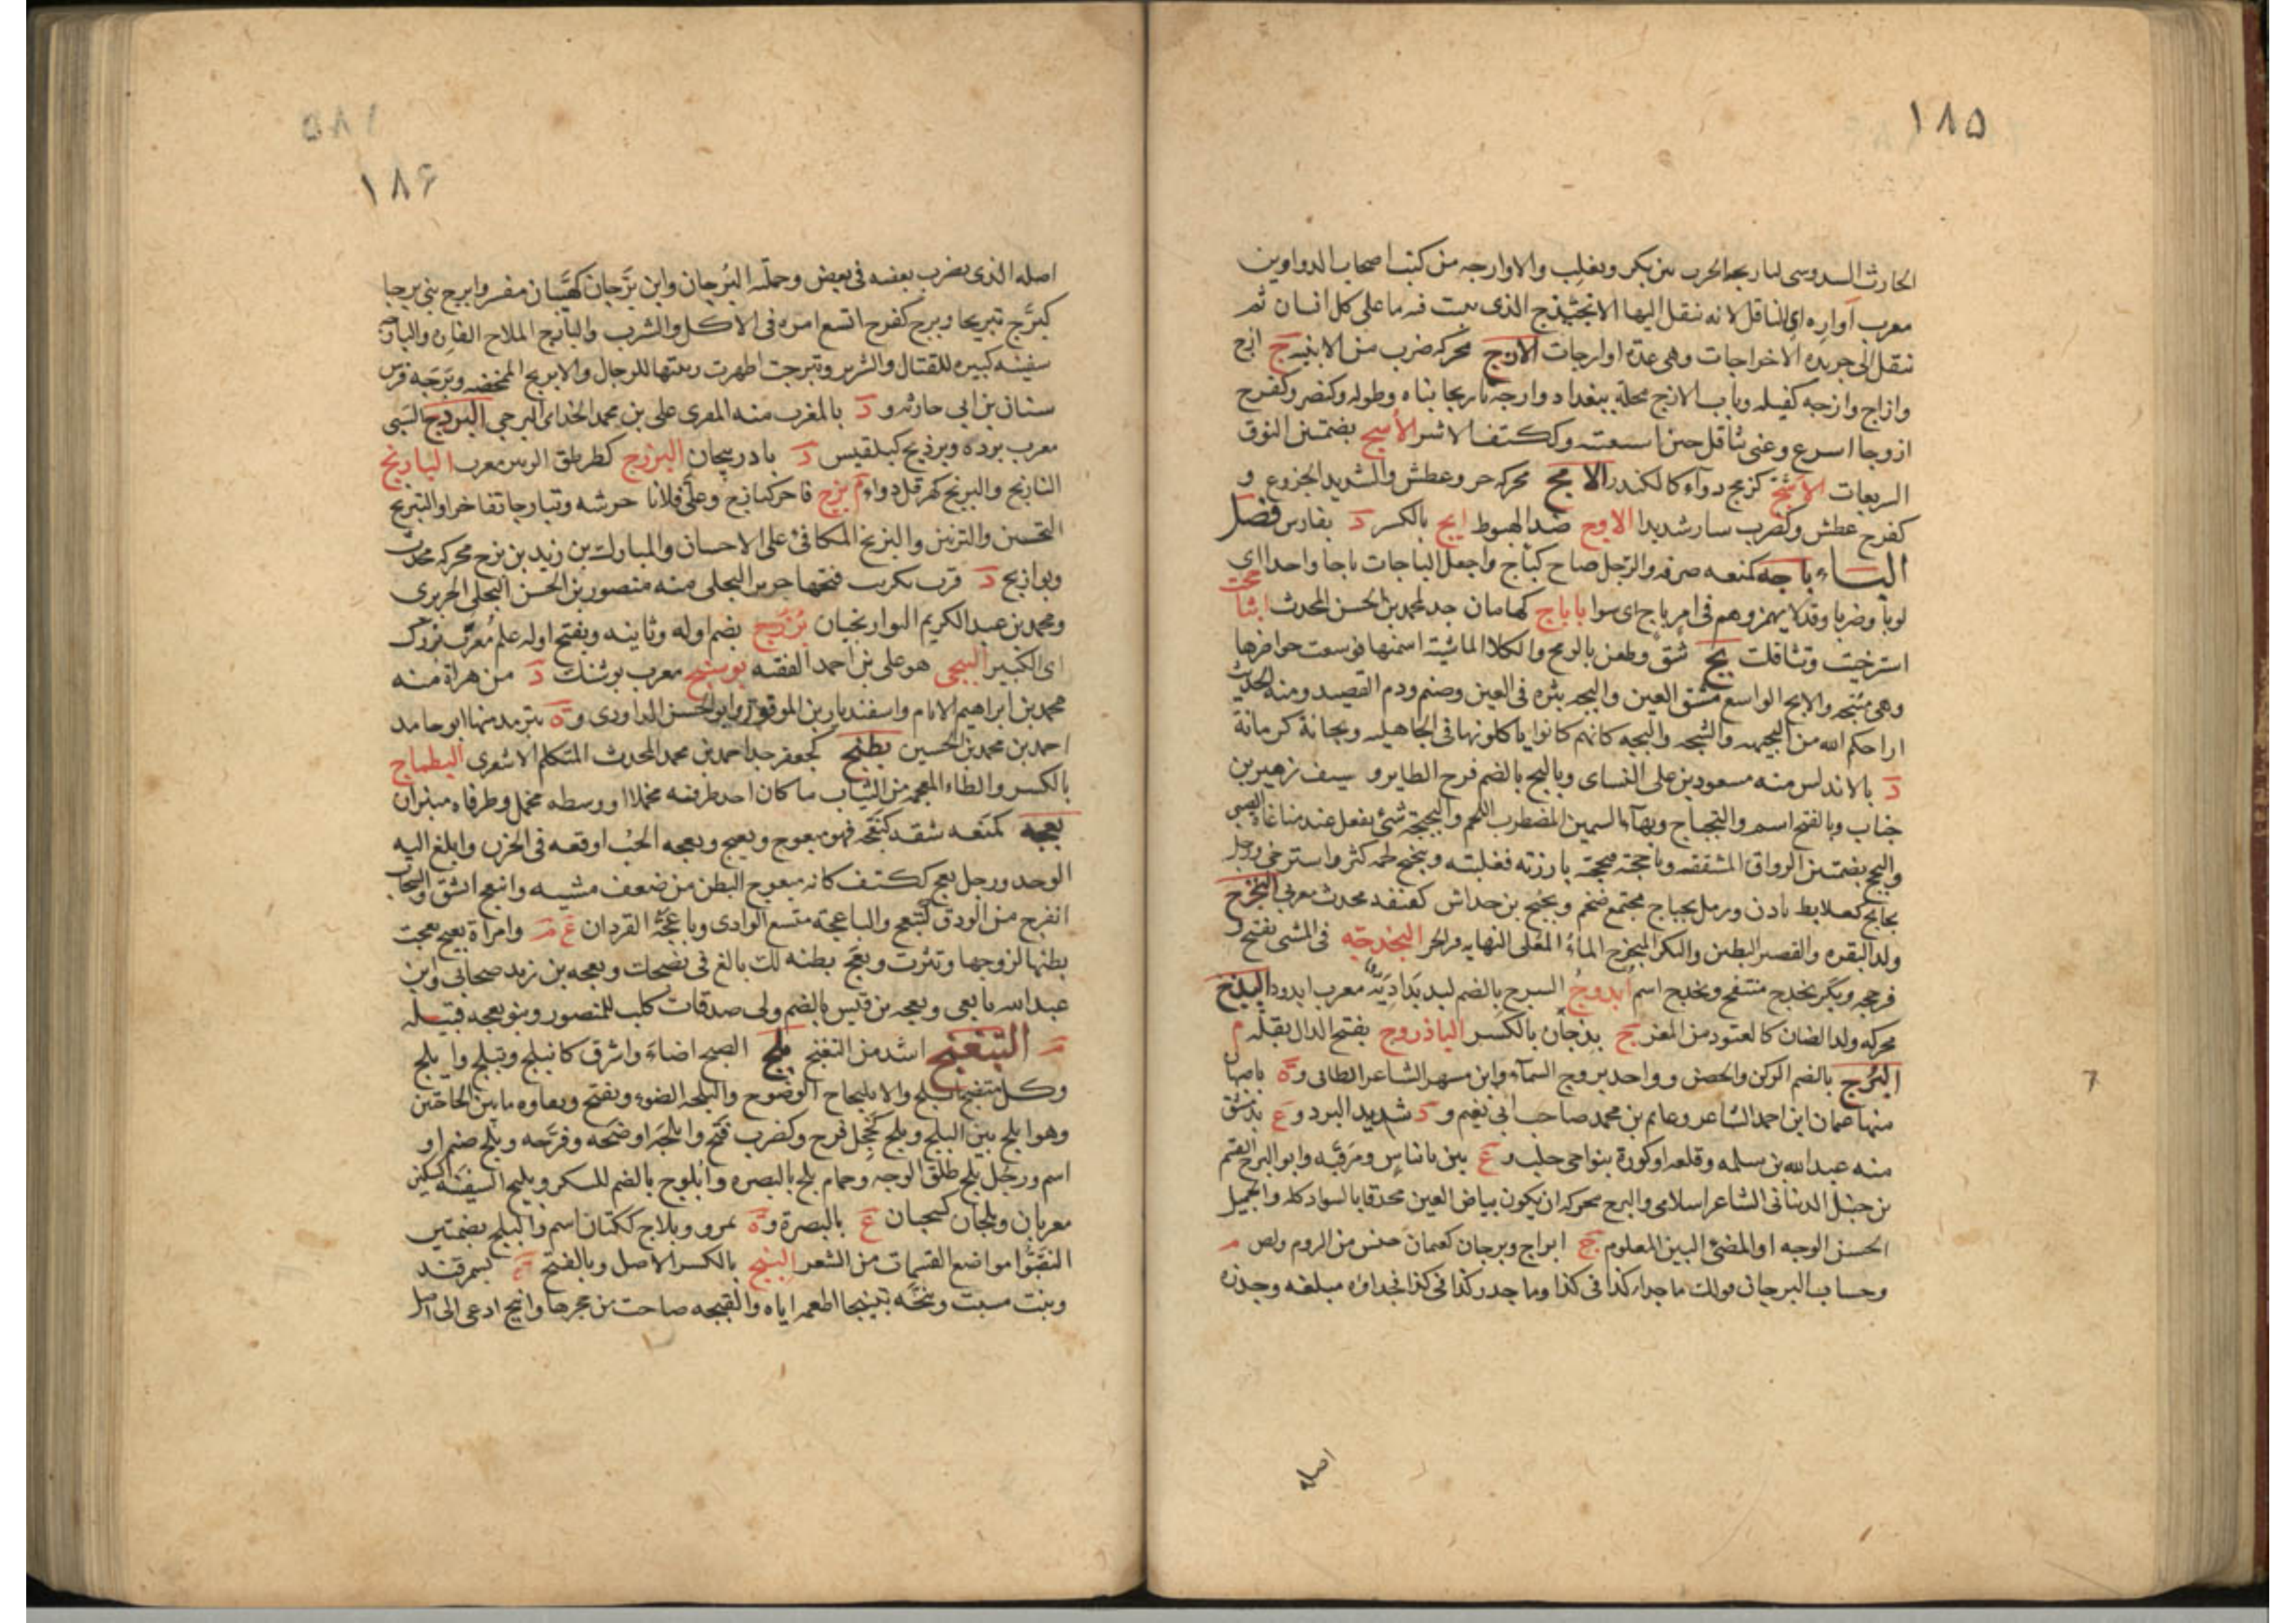 ١٨٥
الحارث السدوسى لتاريجه الحرب بين بكر وتغلب والاوارجه من كتب اصحاب الدواوين
معرب آواره اى الناقل لانه ننقل اليها الانجيذج الذى يثبت فيه ما على كل انسان ثم
ننقل الى جريدة الاخراجات وهى عدة اوارجات الازج محركه ضرب من الابنيه ج ازج
وازاج وازجه كفيله وباب الازج محلة ببغداد وازجه تازيجا بناه وطوله وكنصر وكفرح
ازوجا اسرع وعنى تثاقل حين استعنته وككتف الاشر الأسج بضمتين النوق
السريعات الاشج كزمج دواء كالكندر الامج محركه حر وعطش والشديد الجزوع و
كفرح عطش وكضرب سار شديدا الاوج ضد الهبوط ايج بالكسر د بفارس فصل
الباء باجه كمنعه صرفه والرجل صاح كباج واجعل الباجات باجا واحدا اى
لوبا وضربا وقد لا يهمز وهم فى امر باج اى سوا باباج كهامان جد لمحمد بن الحسن المحدث ابثا محت
استرخيت وتثاقلت بج شق وطعن بالرمح والكلا الماشية اسمنها فوسعت خواصرها
وهى مبتجه والابج الواسع مشق العين والبجه بثره فى العين وصنم ودم الفصيد ومنه الحديث
اراحكم الله من الجبهه والشجه والبجه كانهم كانوا ياكلونها فى الجاهليه وبجانة كرمانة
د بالاندلس منه مسعود بن على النساى وبالبج بالضم فرخ الطاير و سيف زهير بن
جناب وبالفتح اسم والبجباج وبهاء السمين المضطرب اللحم والبجبجة شئ يفعل عند مناغاة الصبى
والبج بضمتين الزواق المشققه وباججته فبججته بارزته فغلبته وبجبج لحمه كثر واسترخى ورجل
بجابج كعلابط بادن ورمل بجباج مجتمع ضخم وبجبج بن خداش كقنفد محدث مغربى البخرج
ولد البقره والقصير البطين والبكر المبخرج الماء المغلى النهايه فى الحر البخدجه فى المشى تفتح و
فرجحه وبكر بخدج منتفخ وبخدج اسم ابدوج السرج بالضم لبد بداديه معرب ابدود البذج
محركه ولد الضان كالعتود من المعز ج بذجان بالكسر الباذروج بفتح الدال بقله م
البرج بالضم الركن والحصن وواحد بروج السماء وابن مسهر الشاعر الطائى وة باصبهان
منها عثمان ابن احمد الشاعر وغانم بن محمد صاحب ابى نعيم و د شديد البرد و ع بدمشق
منه عبد الله بن سلمه وقلعه او كورة بنواحى حلب و ع بين بانياس ومرقبه وابو البرج القسم
بن حنبل الذبيانى الشاعر اسلامى والبرج محركه ان يكون بياض العين محدقا بالسواد كله والجميل
الحسن الوجه او المضئ البين المعلوم ج ابراج وبرجان كعثمان جنس من الروم ولص م
وحساب البرجان قولك ما جداء كذا فى كذا وما جذر كذا فى كذا فجداؤه مبلغه وجذره
اصله
١٨٦
اصله الذى يضرب بعضه فى بعض وجملته البرجان وابن برجان كهيبان مفسر وابرج بنى برجا
كبرج تبريجا وبرج كفرح اتسع امره فى الاكل والشرب والبارج الملاح الفاره والبارجه
سفينه كبيره للقتال والشرير وتبرجت اظهرت زينتها للرجال والابريج الممخضه وبرجه فرس
سنان بن ابى حارثه و د بالمغرب منه المقرى على بن محمد الجذامى البرجى البردج السبى
معرب برده وبرديج كبلقيس د باذربيجان البرزج كطربق الزبير معرب البارنج
النارنج والبرنج كهرقل دواء م بزج فاخر كبازج وعلى فلانا حرشه وتبازجا تفاخرا والتبزيج
التحسين والتزيين والبزيج المكافئ على الاحسان والمبارك بن زيد بن بزج محركه محدث
وبوازيج د قرب تكريت فتحها جرير البجلى منه منصور بن الحسن البجلى الجريرى
ومحمد بن عبد الكريم البوازيجيان بزرج بضم اوله وثانيه وبفتح اوله علم معرب بزرك
اى الكبير البجى هو على بن احمد الفقيه بوسنج معرب بوشنك د من هراة منه
محمد بن ابراهيم الامام واسفنديار بن الموفق وابو الحسن الداودى وة بترمد منها ابو حامد
احمد بن محمد بن الحسين بطنج كجعفر جد احمد بن محمد المحدث المتكلم الاشعرى البظماج
بالكسر والظاء المعجمه من الثياب ما كان احد طرفيه مخملا او وسطه مخمل وطرفاه منيران
بعجه كمنعه شقه كبعجه فهو مبعوج وبعيج وبعجه الحب اوقعه فى الحزن وابلغ اليه
الوجد ورجل بعج ككتف كانه مبعوج البطن من ضعف مشيه وانبعج انشق والسحاب
انفرج من الودق كتبعج والباعجة متسع الوادى وباعجة القردان ع م وامراة بعيج بعجت
بطنها لزوجها ونثرت وبعج بطنه لك بالغ فى نصيحتك وبعجه بن زيد صحابى وابن
عبد الله تابعى وبعجه بن قيس بالضم ولى صدقات كلب للمنصور وبنو بعجه قبيله
م التبغنج اشد من التغنج بلج الصبح اضاء واشرق كانبلج وتبلج وابلج
وكل متضح ابلج والابليجاج الوضوح والبلجه الضوء وبفتح ونقاوه ما بين الحاجبين
وهو ابلج بين البلج وبلج كخجل فرح وكضرب فتح وابلجه اوضحه وفرحه وبلج صنم او
اسم ورجل بلج طلق الوجه وحمام بلج بالبصره وابلوج بالضم للسكر وبليج السفينه كسكين
معربان وبلجان كسحبان ع بالبصرة وة بمرو وبلاج ككتان اسم والبلج بضمتين
النقيو مواضع القسمات من الشعر البنج بالكسر الاصل وبالفتح ة بسمرقند
ونبت مسبت وبنجه تبنيجا اطعمه اياه والقبجه صاحت من جحرها وانبج ادعى الى اصل